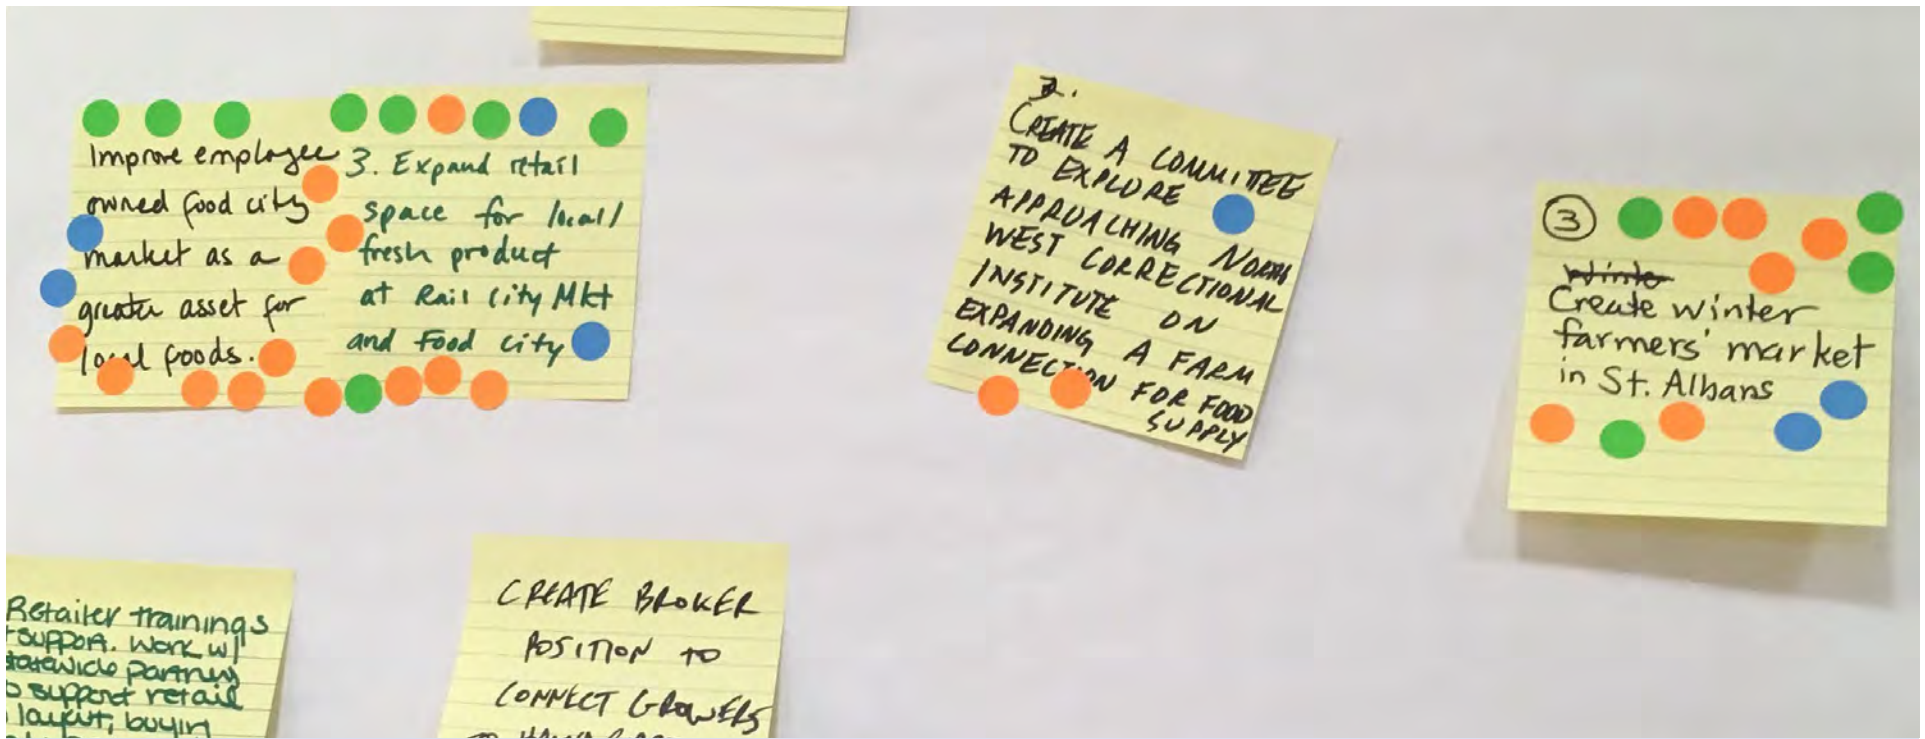 Improve employee
owned food city
market as a
greater asset for
local foods.
3. Expand retail
space for local/
fresh product
at Rail City Mkt
and Food city
2.
CREATE A COMMITTEE
TO EXPLORE
APPROACHING NORTH
WEST CORRECTIONAL
INSTITUTE ON
EXPANDING A FARM
CONNECTION FOR FOOD
SUPPLY
3
Winte
Create winter
farmers' market
in St. Albans
Retailer trainings
+ support. Work w/
statewide partners
to support retail
layout, buyin
CREATE BROKER
POSITION TO
CONNECT GROWERS
TO